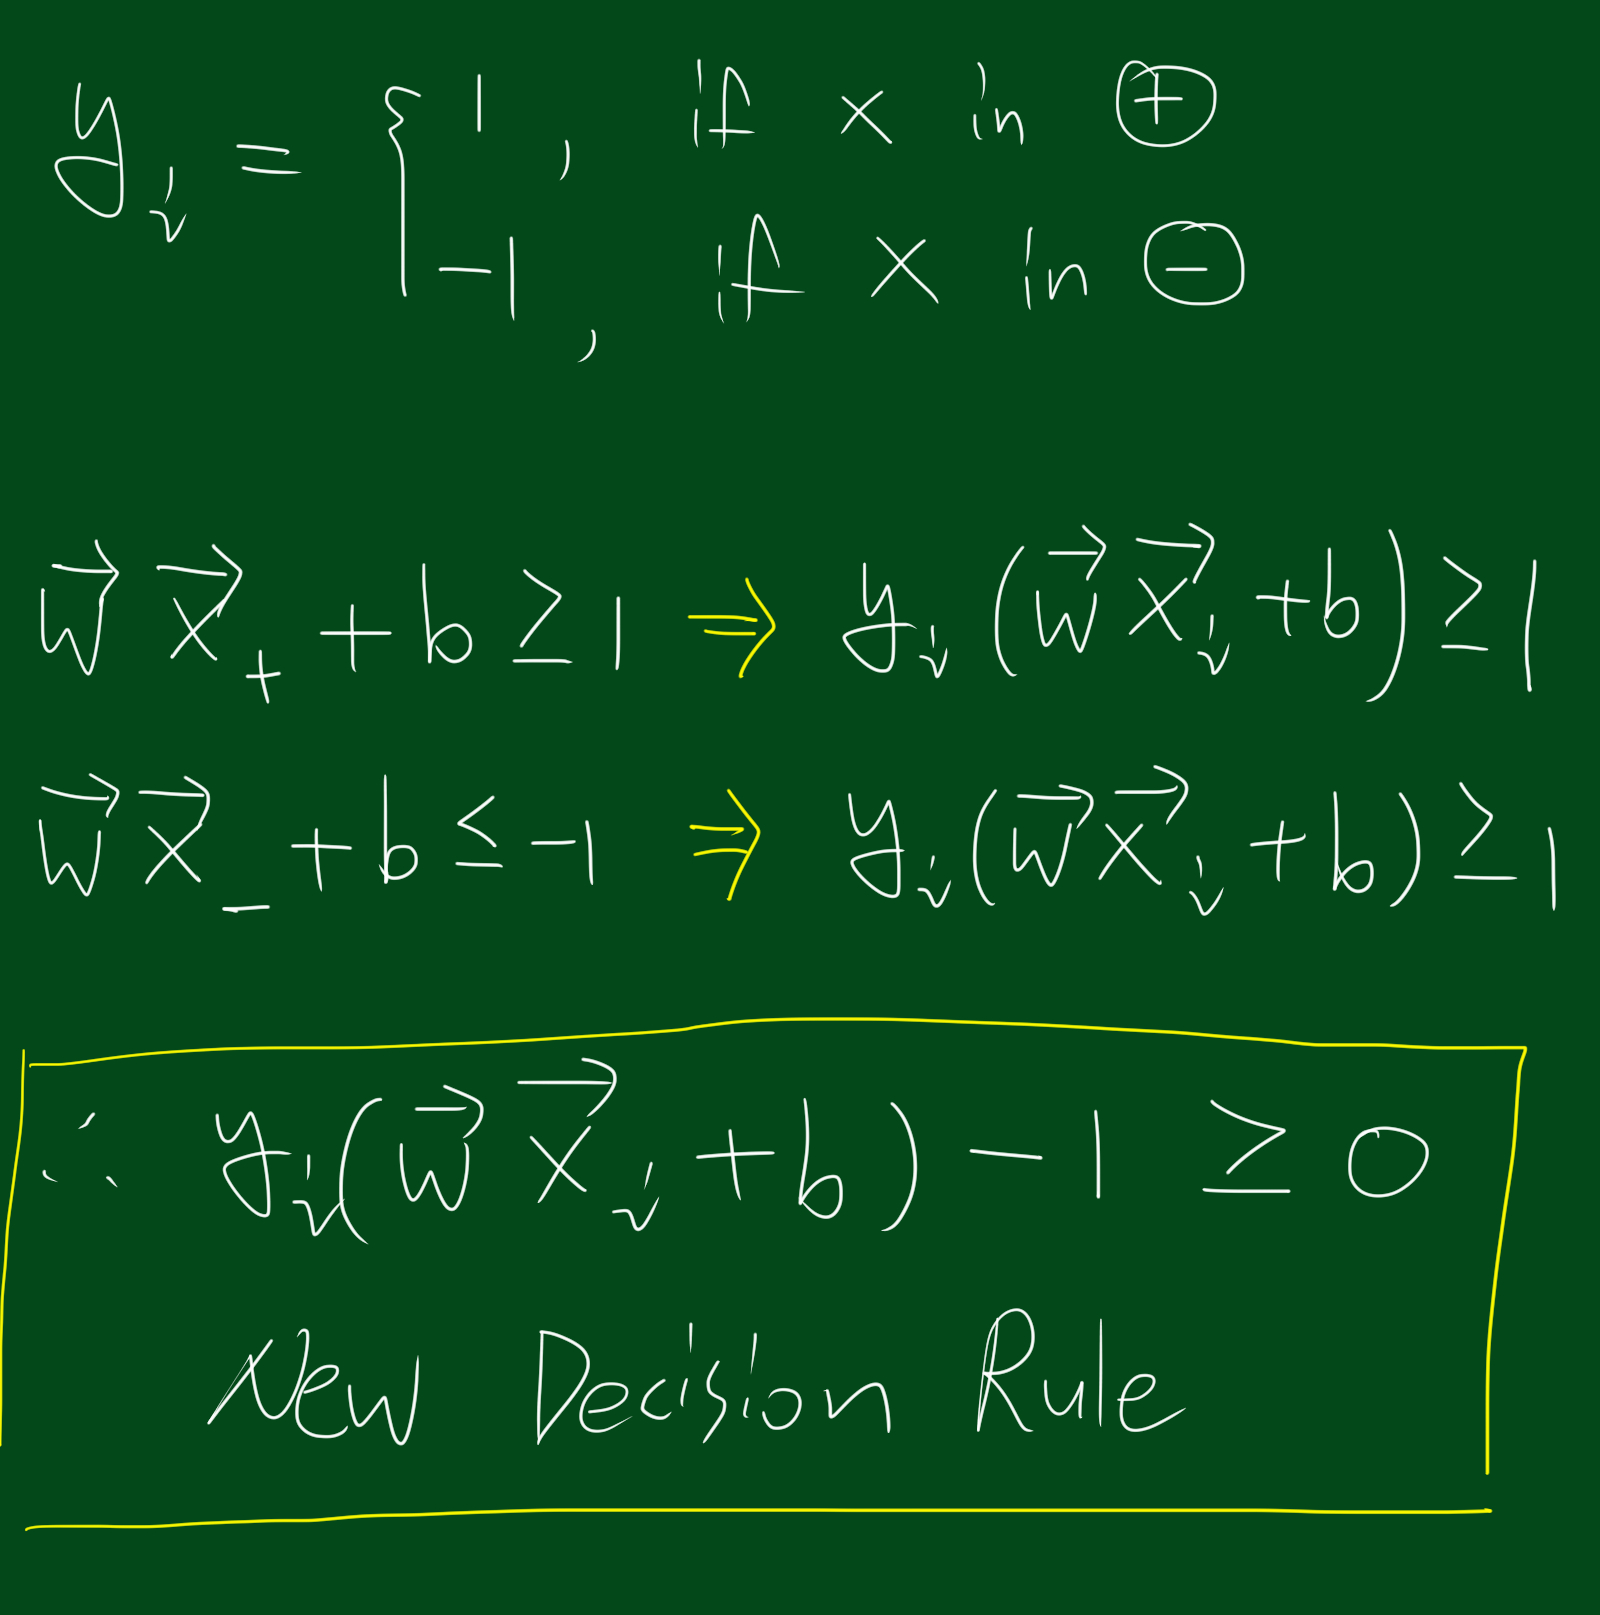 yᵢ = { 1 , if x in ⊕
-1 , if x in ⊖
w⃗ x⃗₊ + b ≥ 1 ⇒ yᵢ (w⃗ x⃗ᵢ + b) ≥ 1
w⃗ x⃗₋ + b ≤ -1 ⇒ yᵢ (w⃗ x⃗ᵢ + b) ≥ 1
∴ yᵢ (w⃗ x⃗ᵢ + b) - 1 ≥ 0
New Decision Rule